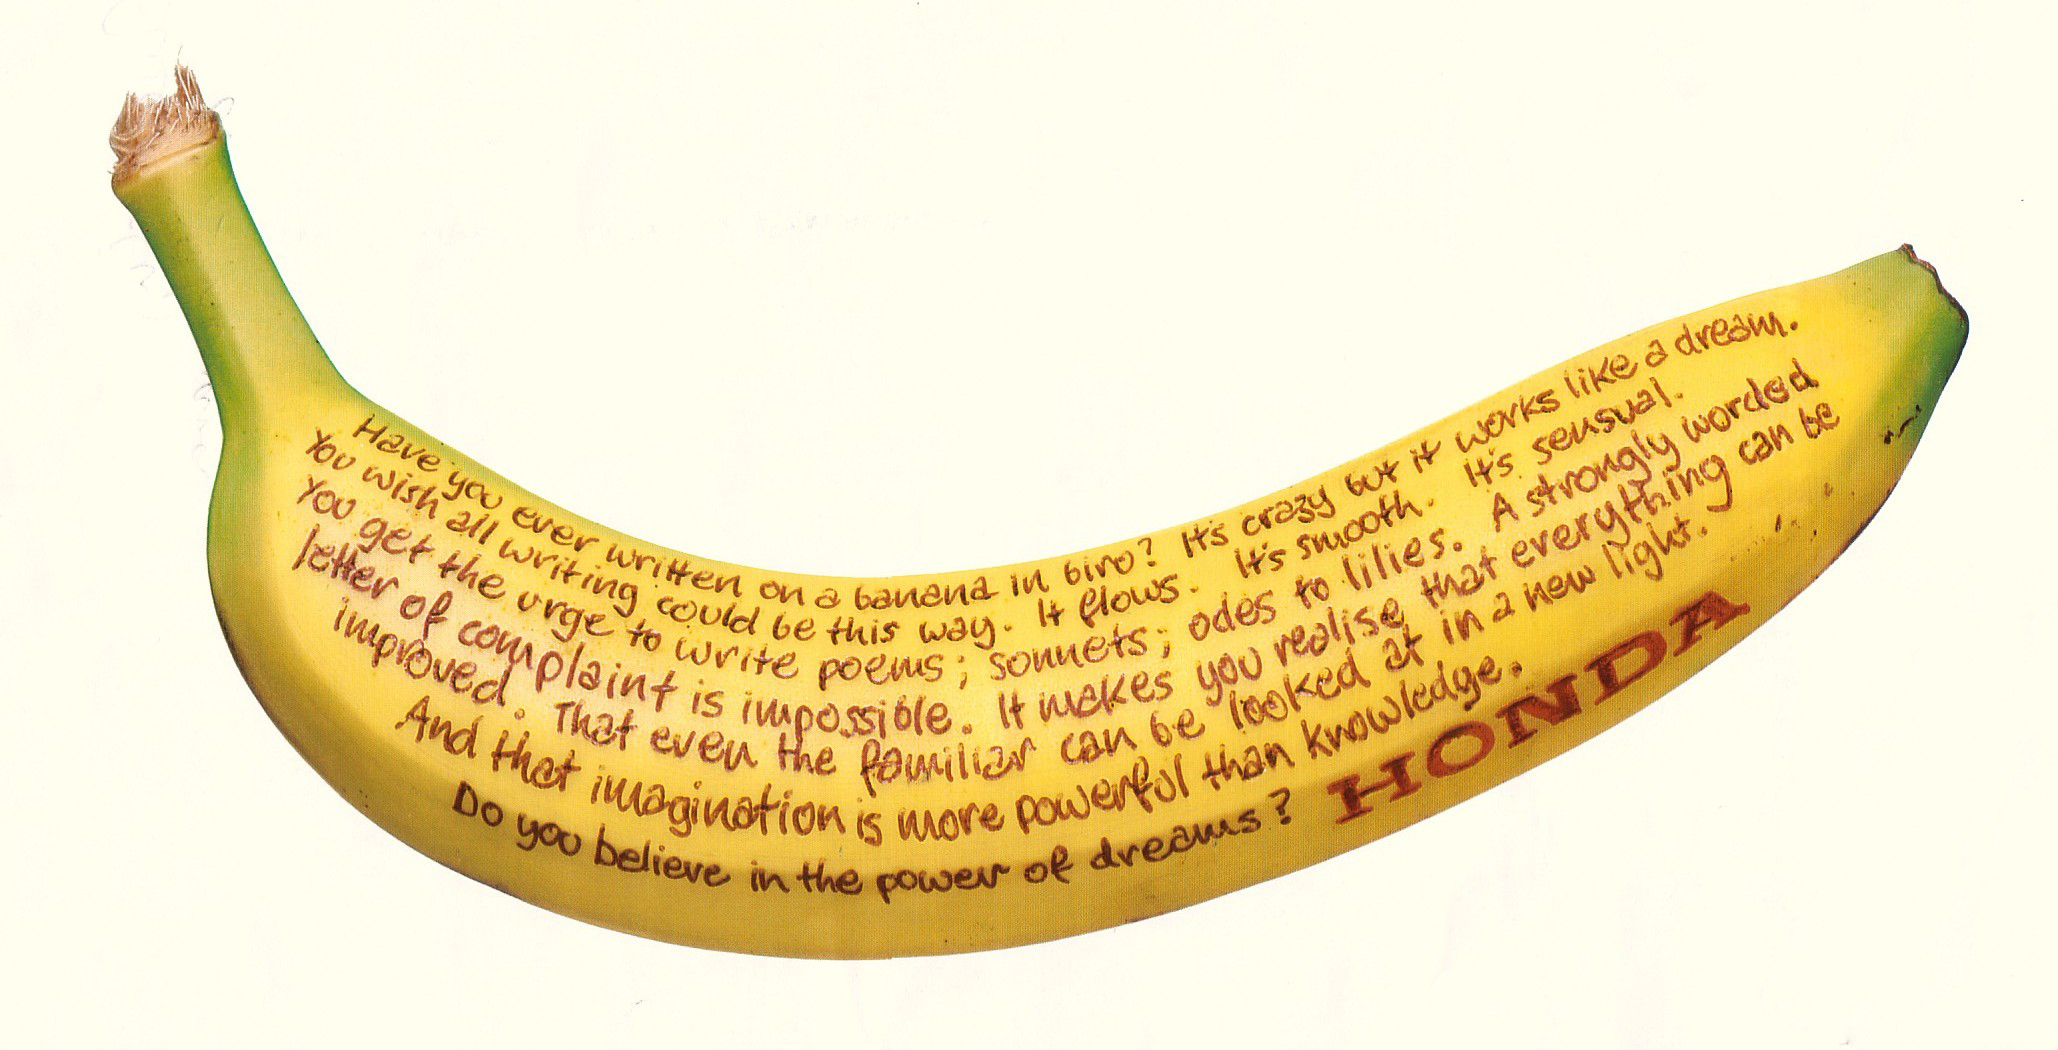 Have you ever written on a banana in biro? It's crazy but it works like a dream.
You wish all writing could be this way. It flows. It's smooth. It's sensual.
You get the urge to write poems; sonnets; odes to lilies. A strongly worded
letter of complaint is impossible. It makes you realise that everything can be
improved. That even the familiar can be looked at in a new light.
And that imagination is more powerful than knowledge.
Do you believe in the power of dreams? HONDA